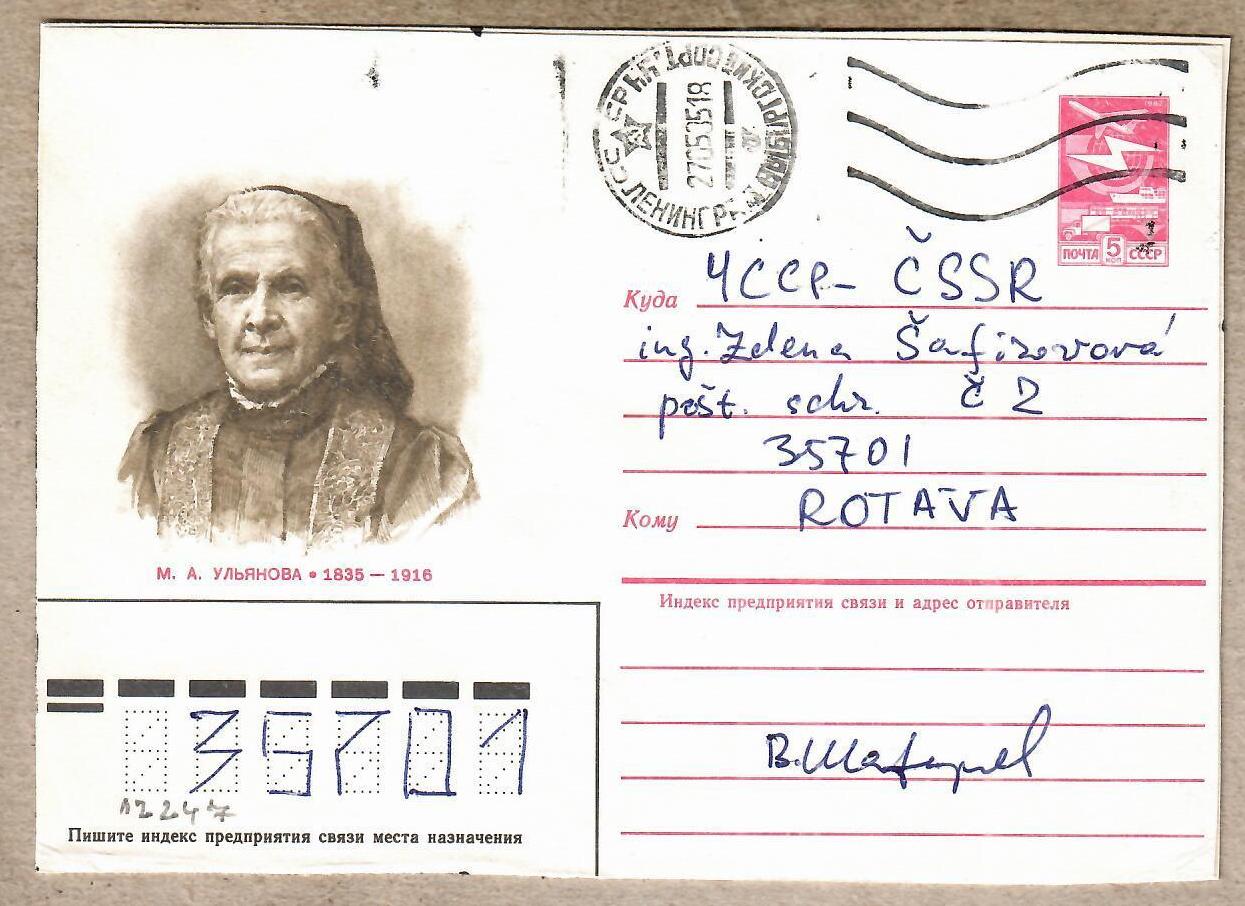 ЛЕНИНГРАД
270585 18
1982
ПОЧТА 5 КОП СССР
Куда ЧССР - ČSSR
ing. Zdena Šafirovová
pošt. schr. Č 2
35701
Кому ROTAVA
М. А. УЛЬЯНОВА • 1835 — 1916
Индекс предприятия связи и адрес отправителя
В. Шафиров
35701
12247
Пишите индекс предприятия связи места назначения